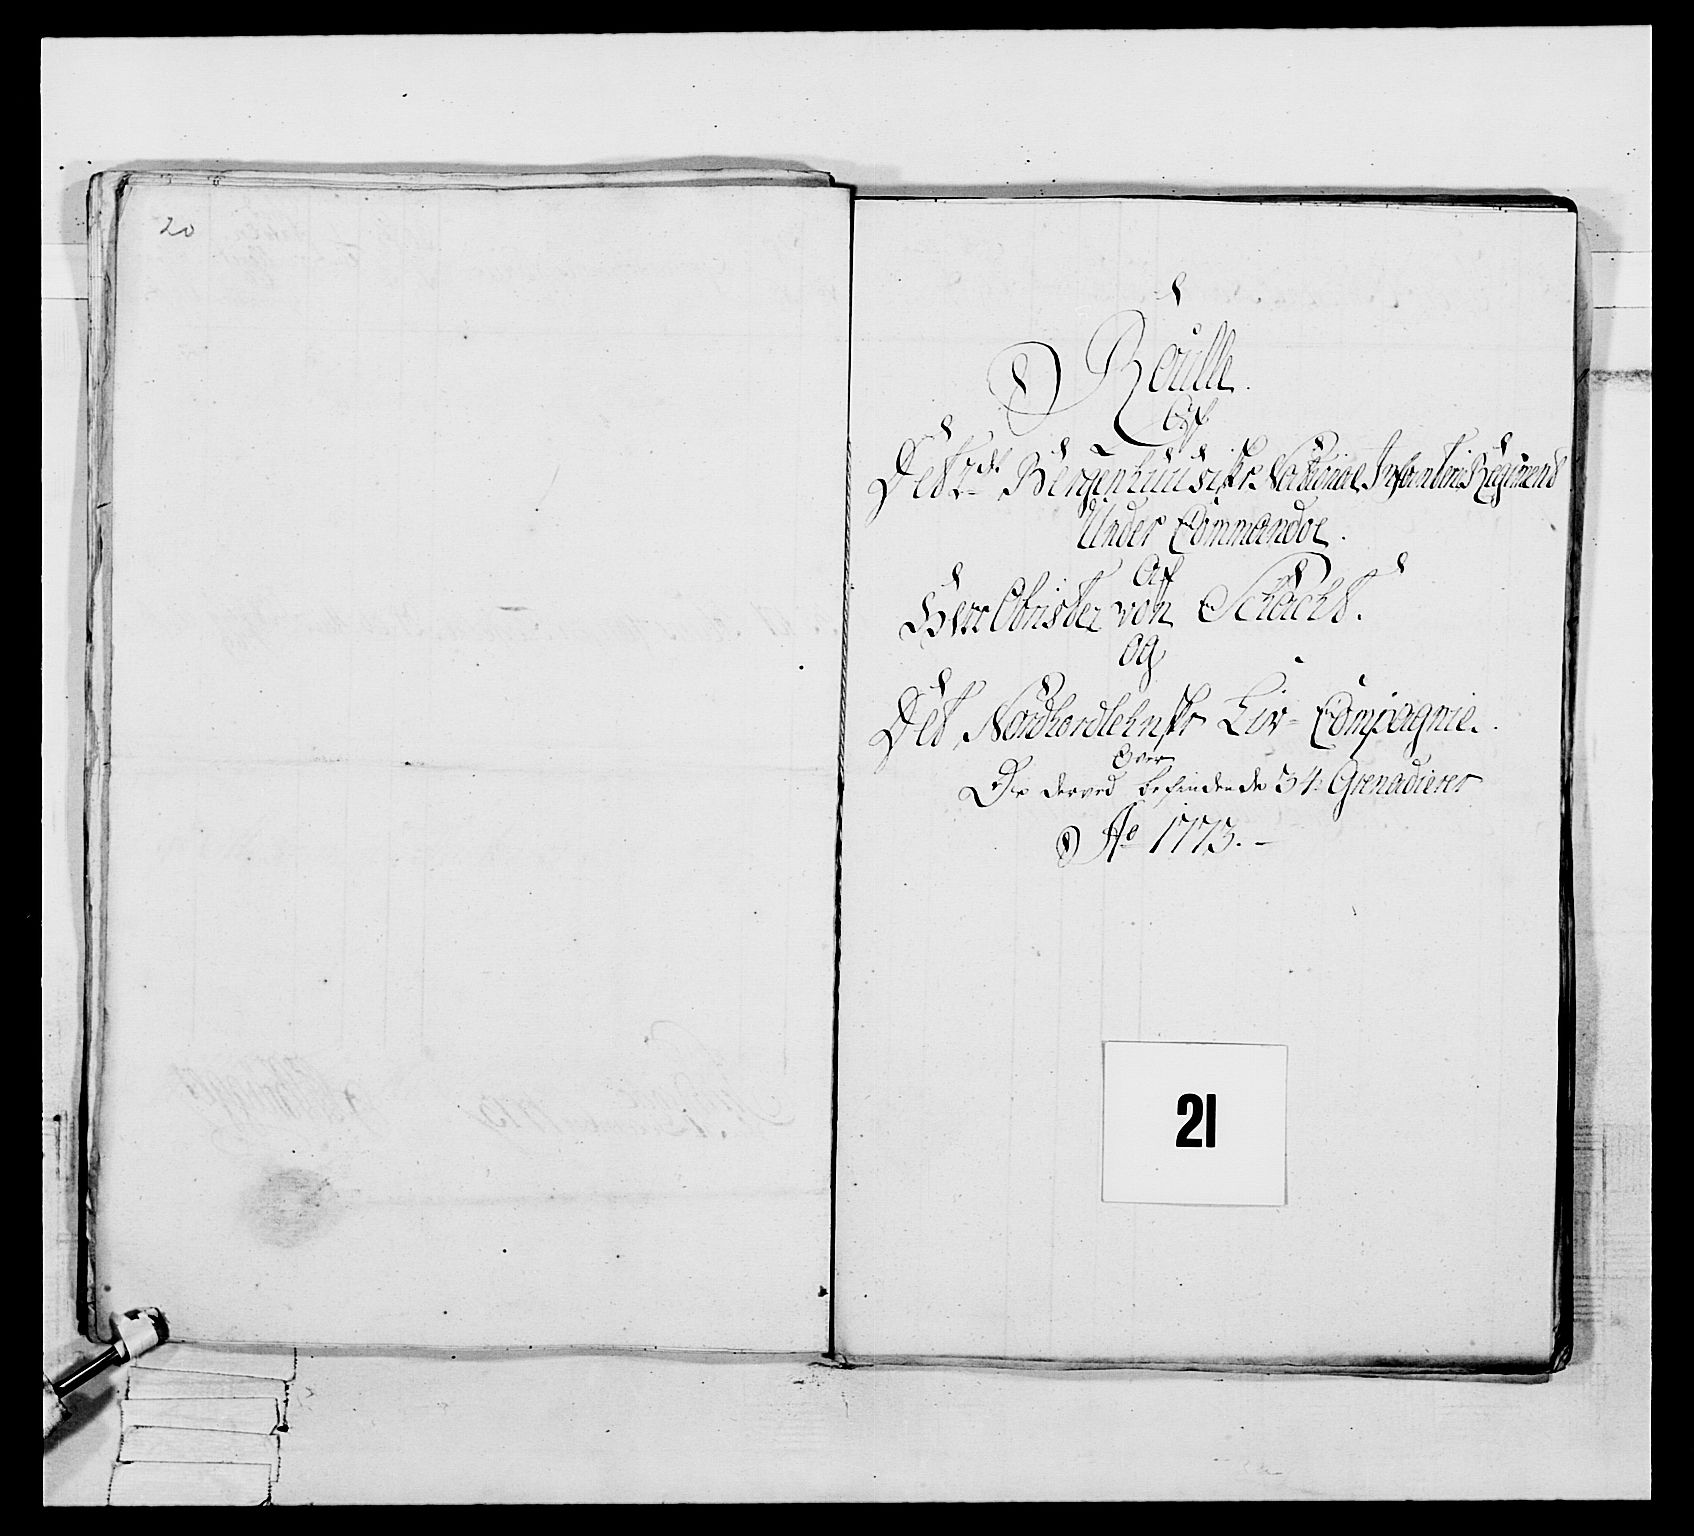 20
Roulle.
Af
Det 2det Bergenhuusiske National Infanterie Regiment
Under Commandoe.
Af
Herr Obrister von Schacht.
og
Det Nordhordlehnske Liv-Compagnie.
Over
De derved befindende 34 Grenadierer
Ao 1773.-
21